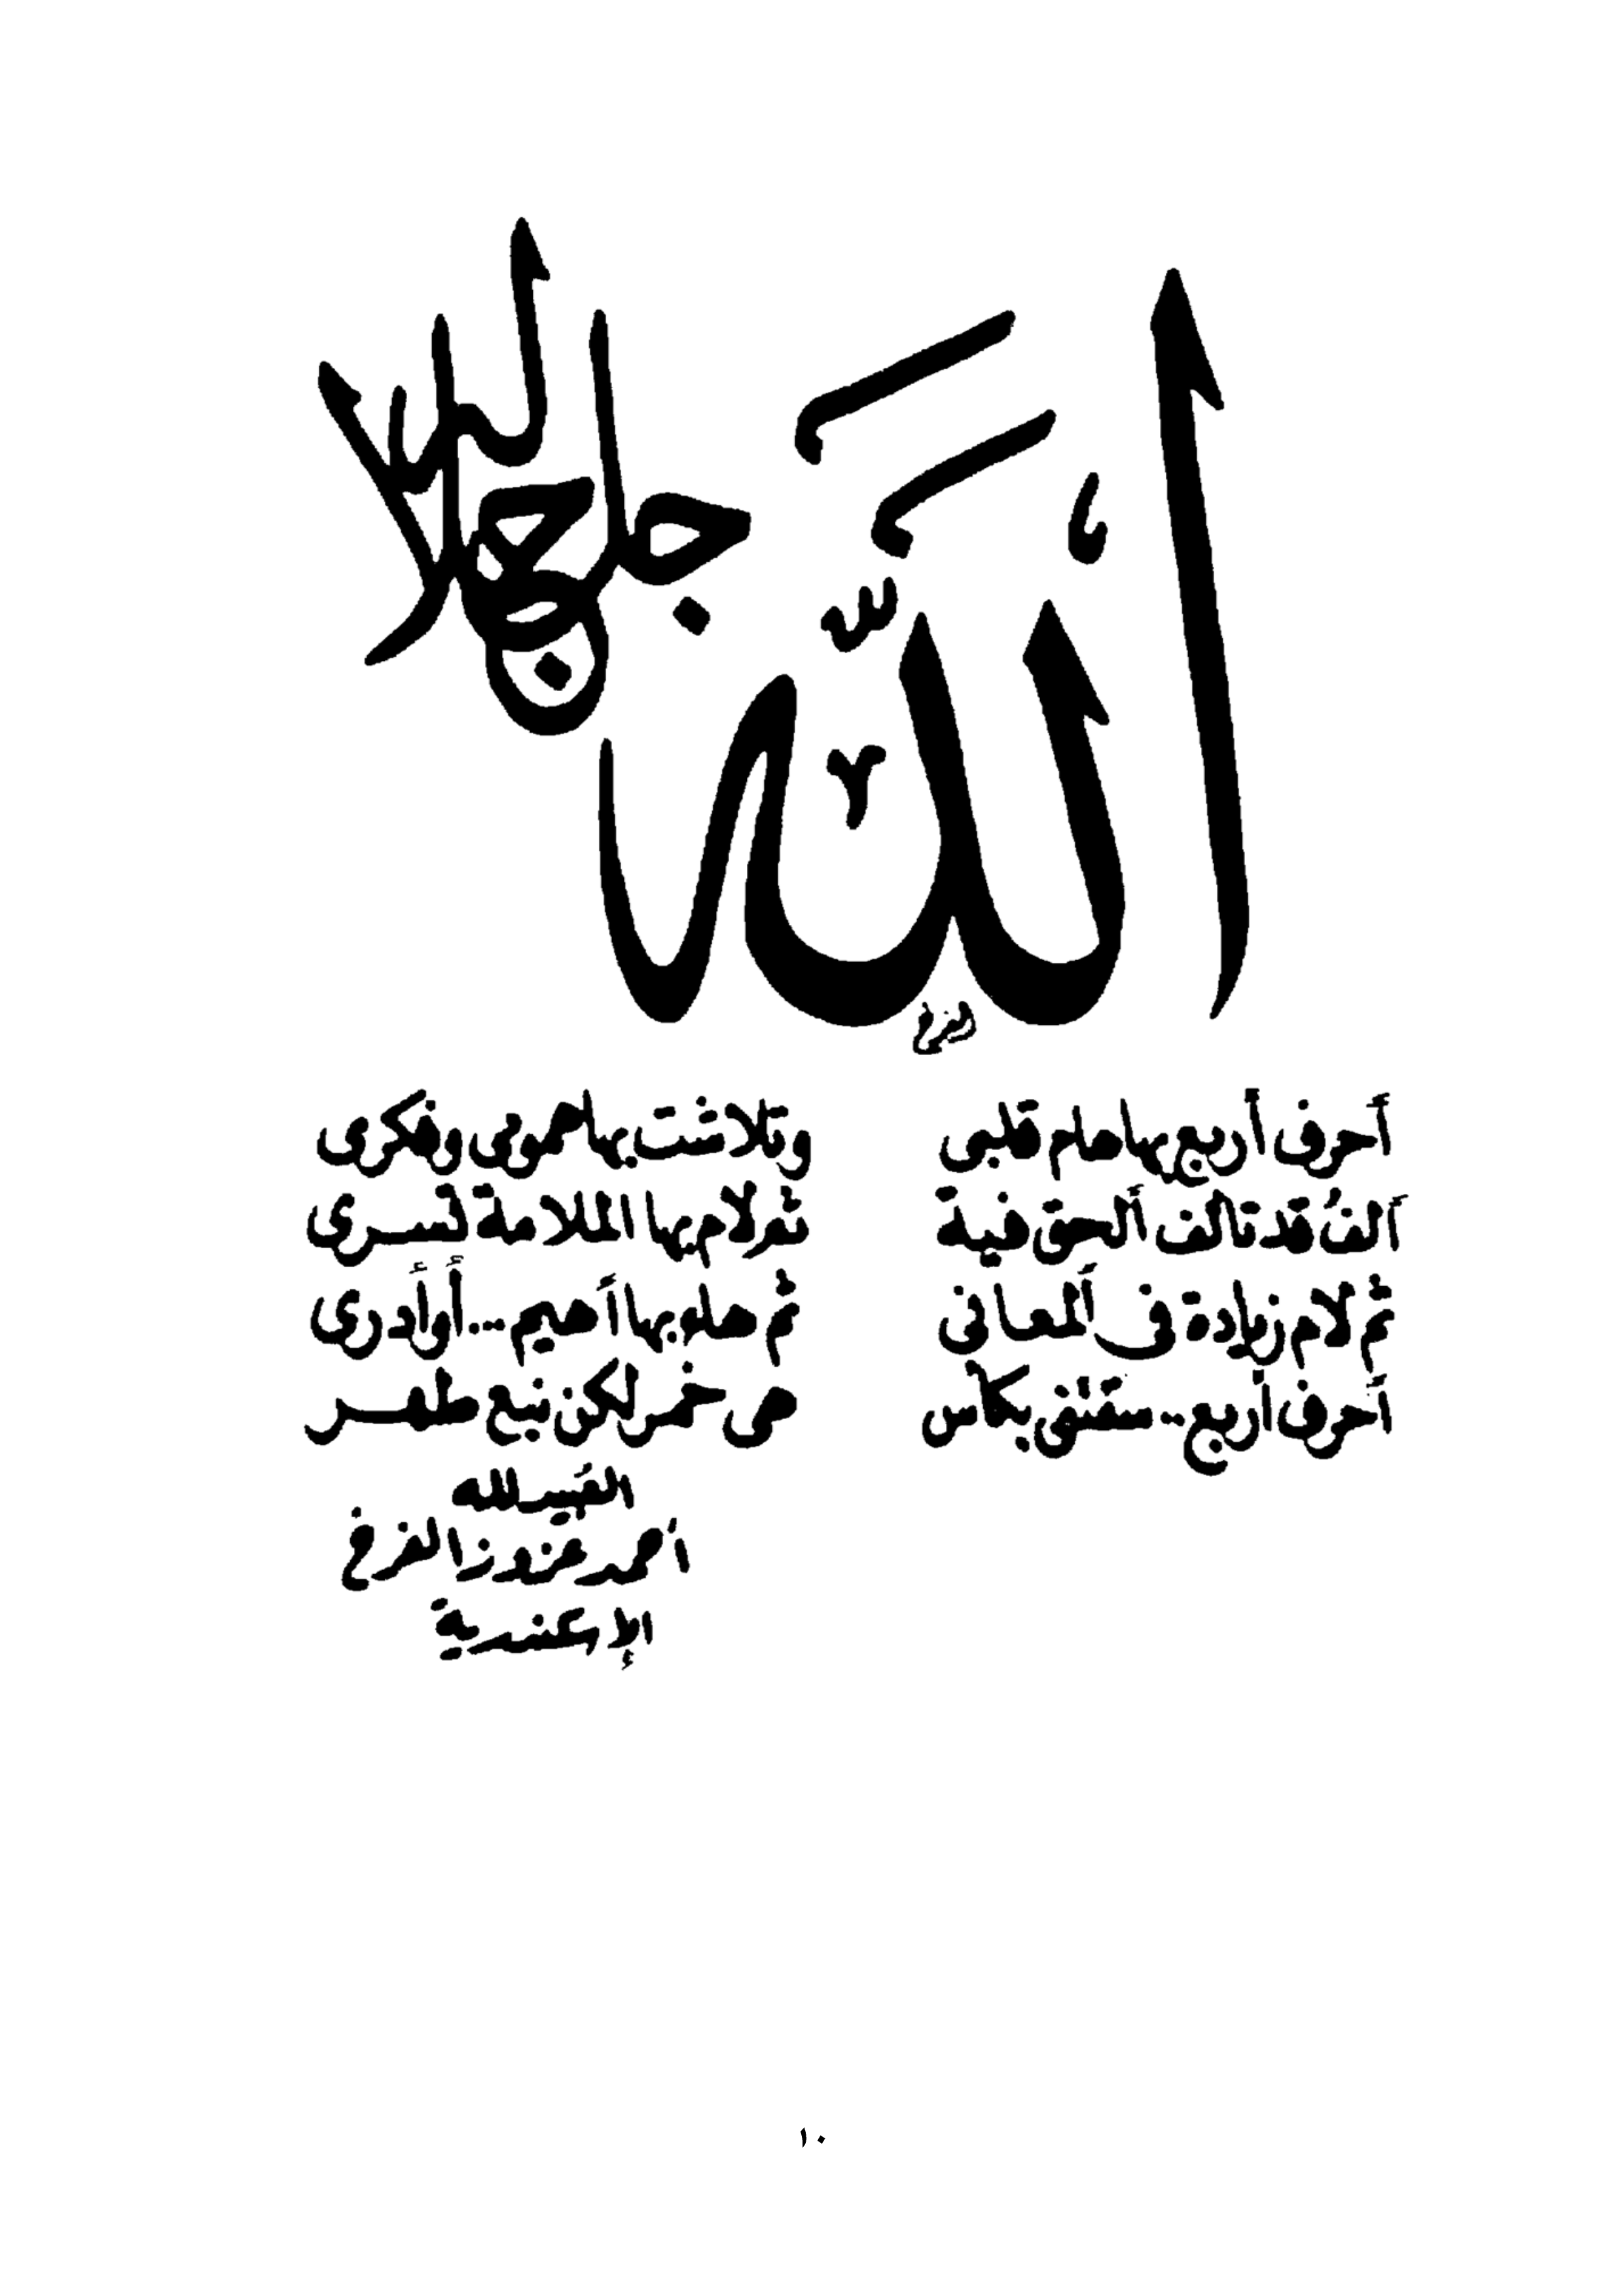 الله جل جلاله
أحرف أربع بها هام قلبى وتلاشت بها همومى وفكرى
ألف قد تألف الحق فيه ثم لام بها الملامة تسرى
ثم لام زيادة فى المعانى ثم هاء بها أهيم ... أو أدرى
أحرف أربع ... سقتنى بكأس من خمر لكن نبع طهر
لله
أحمد
الإسكندرية
١٠